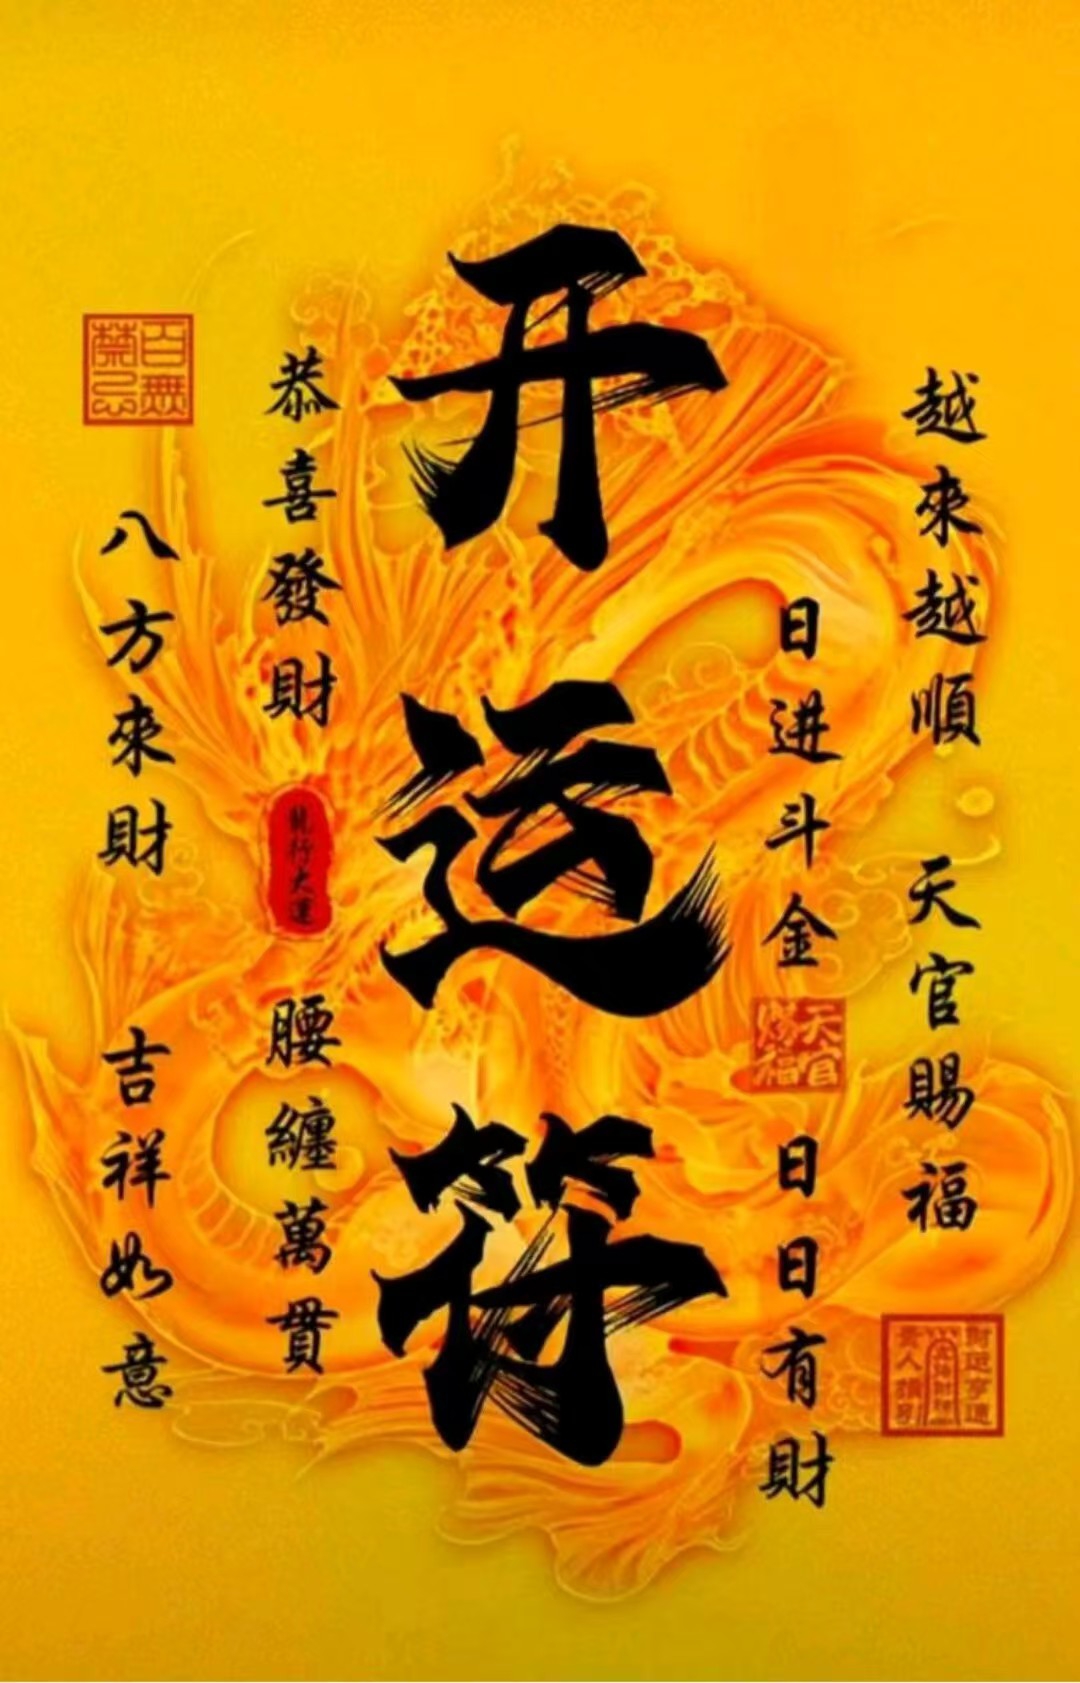 开运符
越來越順 天官賜福
日进斗金
天官賜福
日日有財
恭喜發財
龍行大運
腰纏萬貫
百無禁忌
八方來財 吉祥如意